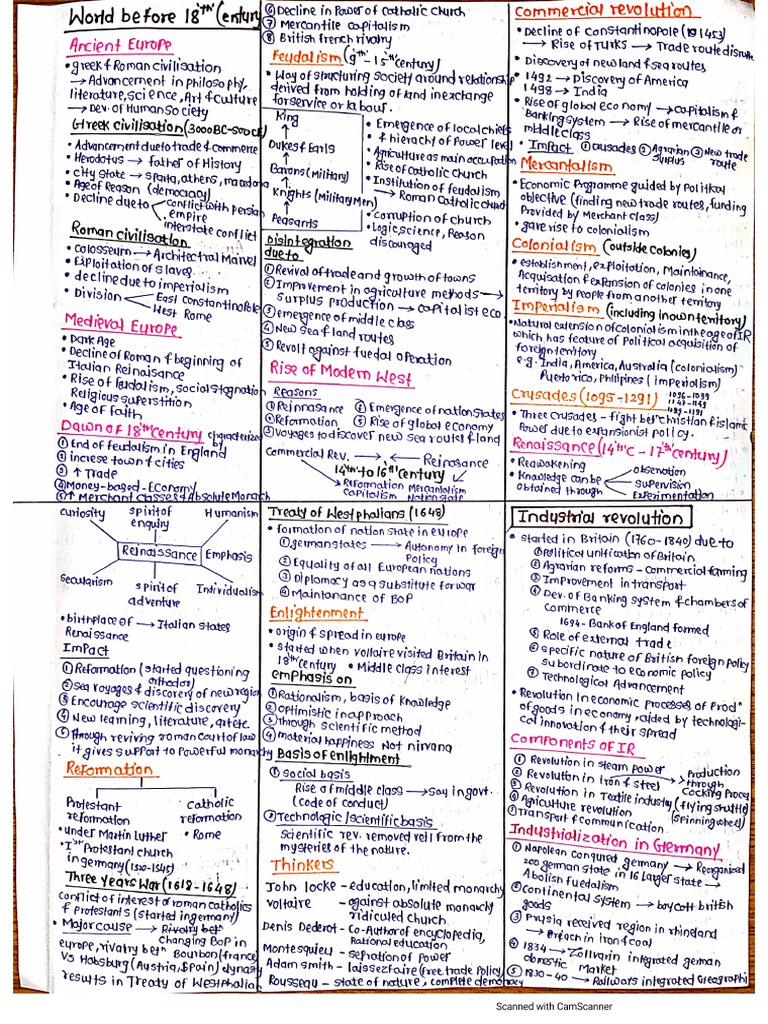 World before 18th Century
Ancient Europe
• greek & Roman civilisation
→ Advancement in philosophy,
literature, science, Art & culture
→ Dev. of Human Society
Greek civilisation (3000BC-500CE)
• Advancement due to trade & commerce
• Herodotus → father of History
• city state → sparta, athens, macedonia
• Age of Reason (democracy)
• Decline due to
conflict with persian
empire
interstate conflict
Roman civilisation
• colosseum → Architectral Marvel
• Exploitation of slaves
• decline due to imperialism
• Division
East Constantinople
West Rome
Medieval Europe
• Dark Age
• Decline of Roman & beginning of
Italian Reinaissance
• Rise of feudalism, social stagnation
Religious superstition
• Age of faith
Dawn of 18th Century characterized
① End of feudalism in England
② increse town & cities
③ ↑ Trade
④ Money-based-Economy
⑤ ↑ Merchant classes & Absolute Monarch
⑥ Decline in Power of Catholic Church
⑦ Mercantile capitalism
⑧ British french rivalry
Feudalism (9th - 15th Century)
• Way of structuring society around relationship
derived from holding of land in exchange
for service or labour.
King
Dukes & Earls
Barons (Military)
Knights (Military Men)
Peasants
• Emergence of local chiefs
& hierachy of Power level
• Agriculture as main occupation
• Rise of Catholic Church
• Institution of feudalism
→ Roman Catholic church
• corruption of church
• Logic, science, Reason
discouraged
Disintegration
due to
① Revival of trade and growth of towns
② Improvement in agriculture methods →
surplus production → capitalist eco.
③ emergence of middle class
④ New sea & land routes
⑤ Revolt against fuedal operation
Rise of Modern West
Reasons
① Reinnasance ④ Emergence of nation states
② Reformation ⑤ Rise of global economy
③ Voyages to discover new sea route & land
Commercial Rev. → ← Reinasance
14th to 16th century
Reformation Mercantalism
Capitalism Nation state
Commercial revolution
• Decline of Constantinople (1453)
→ Rise of Turks → Trade route disrute
• Discovery of new land & sea routes
• 1492 → Discovery of America
1498 → India
• Rise of global economy → capitalism &
Banking system → Rise of mercantile or
middle class
• Impact ① crusades ② Agrarian surplus ③ New trade route
Mercantalism
• Economic Programme guided by Political
objective (finding new trade routes, funding
Provided by Merchant class)
• gave rise to colonialism
Colonialism (outside colonies)
• establishment, exploitation, Maintainance,
Acquisation & expansion of colonies in one
territory by people from another territory
Imperialism (including in own territory)
• Natural extension of colonialism in the age of IR
which has feature of Political acquisition of
foreign territory
e.g. India, America, Australia (colonialism)
Puerto rico, Philipines (imperialism)
Crusades (1095-1291)
1096-1099
1147-1149
1189-1191
• Three crusades - fight betn christian & islamic
Power due to expansionist policy.
Renaissance (14thC - 17th century)
• Reawakening
• Knowledge can be
obtained through
observation
supervision
Experimentation
curiosity spirit of enquiry Humanism
Reinaissance Emphasis
secularism spirit of adventure Individualism
• birthplace of → Italian states
Renaissance
Impact
① Reformation (started questioning
orthodox)
② sea voyages & discovery of new region
③ Encourage scientific discovery
④ New learning, literature, art etc.
⑤ Through reviving roman court of law
it gives support to Powerful monarchy
Reformation
Protestant
reformation
• under Martin luther
• Ist Protestant church
in germany (1520-1545)
Catholic
reformation
• Rome
Three Years War (1618-1648)
conflict of interest of roman catholics
& Protestants (started in germany)
• Major cause → Rivalry betn
changing BoP in
europe, rivalry betn Bourbon (france)
Vs Habsburg (Austria, Spain) dynasty
results in Treaty of Westphalian
Treaty of Westphalians (1648)
• formation of nation state in europe
① german states → Autonomy in foreign
Policy
② Equality of all European nations
③ Diplomacy as a substitute for war
④ Maintonance of BoP
Enlightenment
• origin & spread in europe
• started when voltaire visited Britain in
18th Century • Middle class interest
emphasis on
① Rationalism, basis of knowledge
② optimistic in approach
③ through scientific method
④ material happiness Not nirvana
Basis of enlightment
① Social basis
Rise of middle class → say in govt.
(code of conduct)
② Technologic/scientific basis
scientific rev. removed veil from the
mysteries of the nature.
Thinkers
John locke - education, limited monarchy
voltaire - against absolute monarchy
ridiculed church
Denis Dederot - Co-Author of encyclopedia,
Rational education
Montesquieu - sepration of power
Adam smith - laissezfaire (free trade Policy)
Rousseau - state of nature, complete democracy
Industrial revolution
• started in Britain (1760-1840) due to
① Political unification of Britain
② Agrarian reforms - commercial farming
③ Improvement in transport
④ Dev. of Banking system & chambers of
Commerce
1694 - Bank of England formed
⑤ Role of external trade
⑥ specific nature of British foreign policy
subordinate to economic policy
⑦ Technological Advancement
• Revolution in economic processes of Prodn
of goods in economy, aided by technologi-
cal innovation & their spread
Components of IR
① Revolution in steam power
② Revolution in iron & steel
③ Revolution in Textile industry (flying shuttle)
(spinning wheel)
④ Agriculture revolution
⑤ Transport & communication
Production
through
Cocking Process
Industrialization in Germany
① Napolean conqured germany → Reorganised
200 german state in 16 larger state →
Abolish fuedalism
② Continental system → boycott british
goods
③ Prusia received region in rhineland
→ Rich in iron & coal
④ 1834 → Zollvarin integrated german
domestic Market
⑤ 1830-40 → Railways integrated Geographi
Scanned with CamScanner